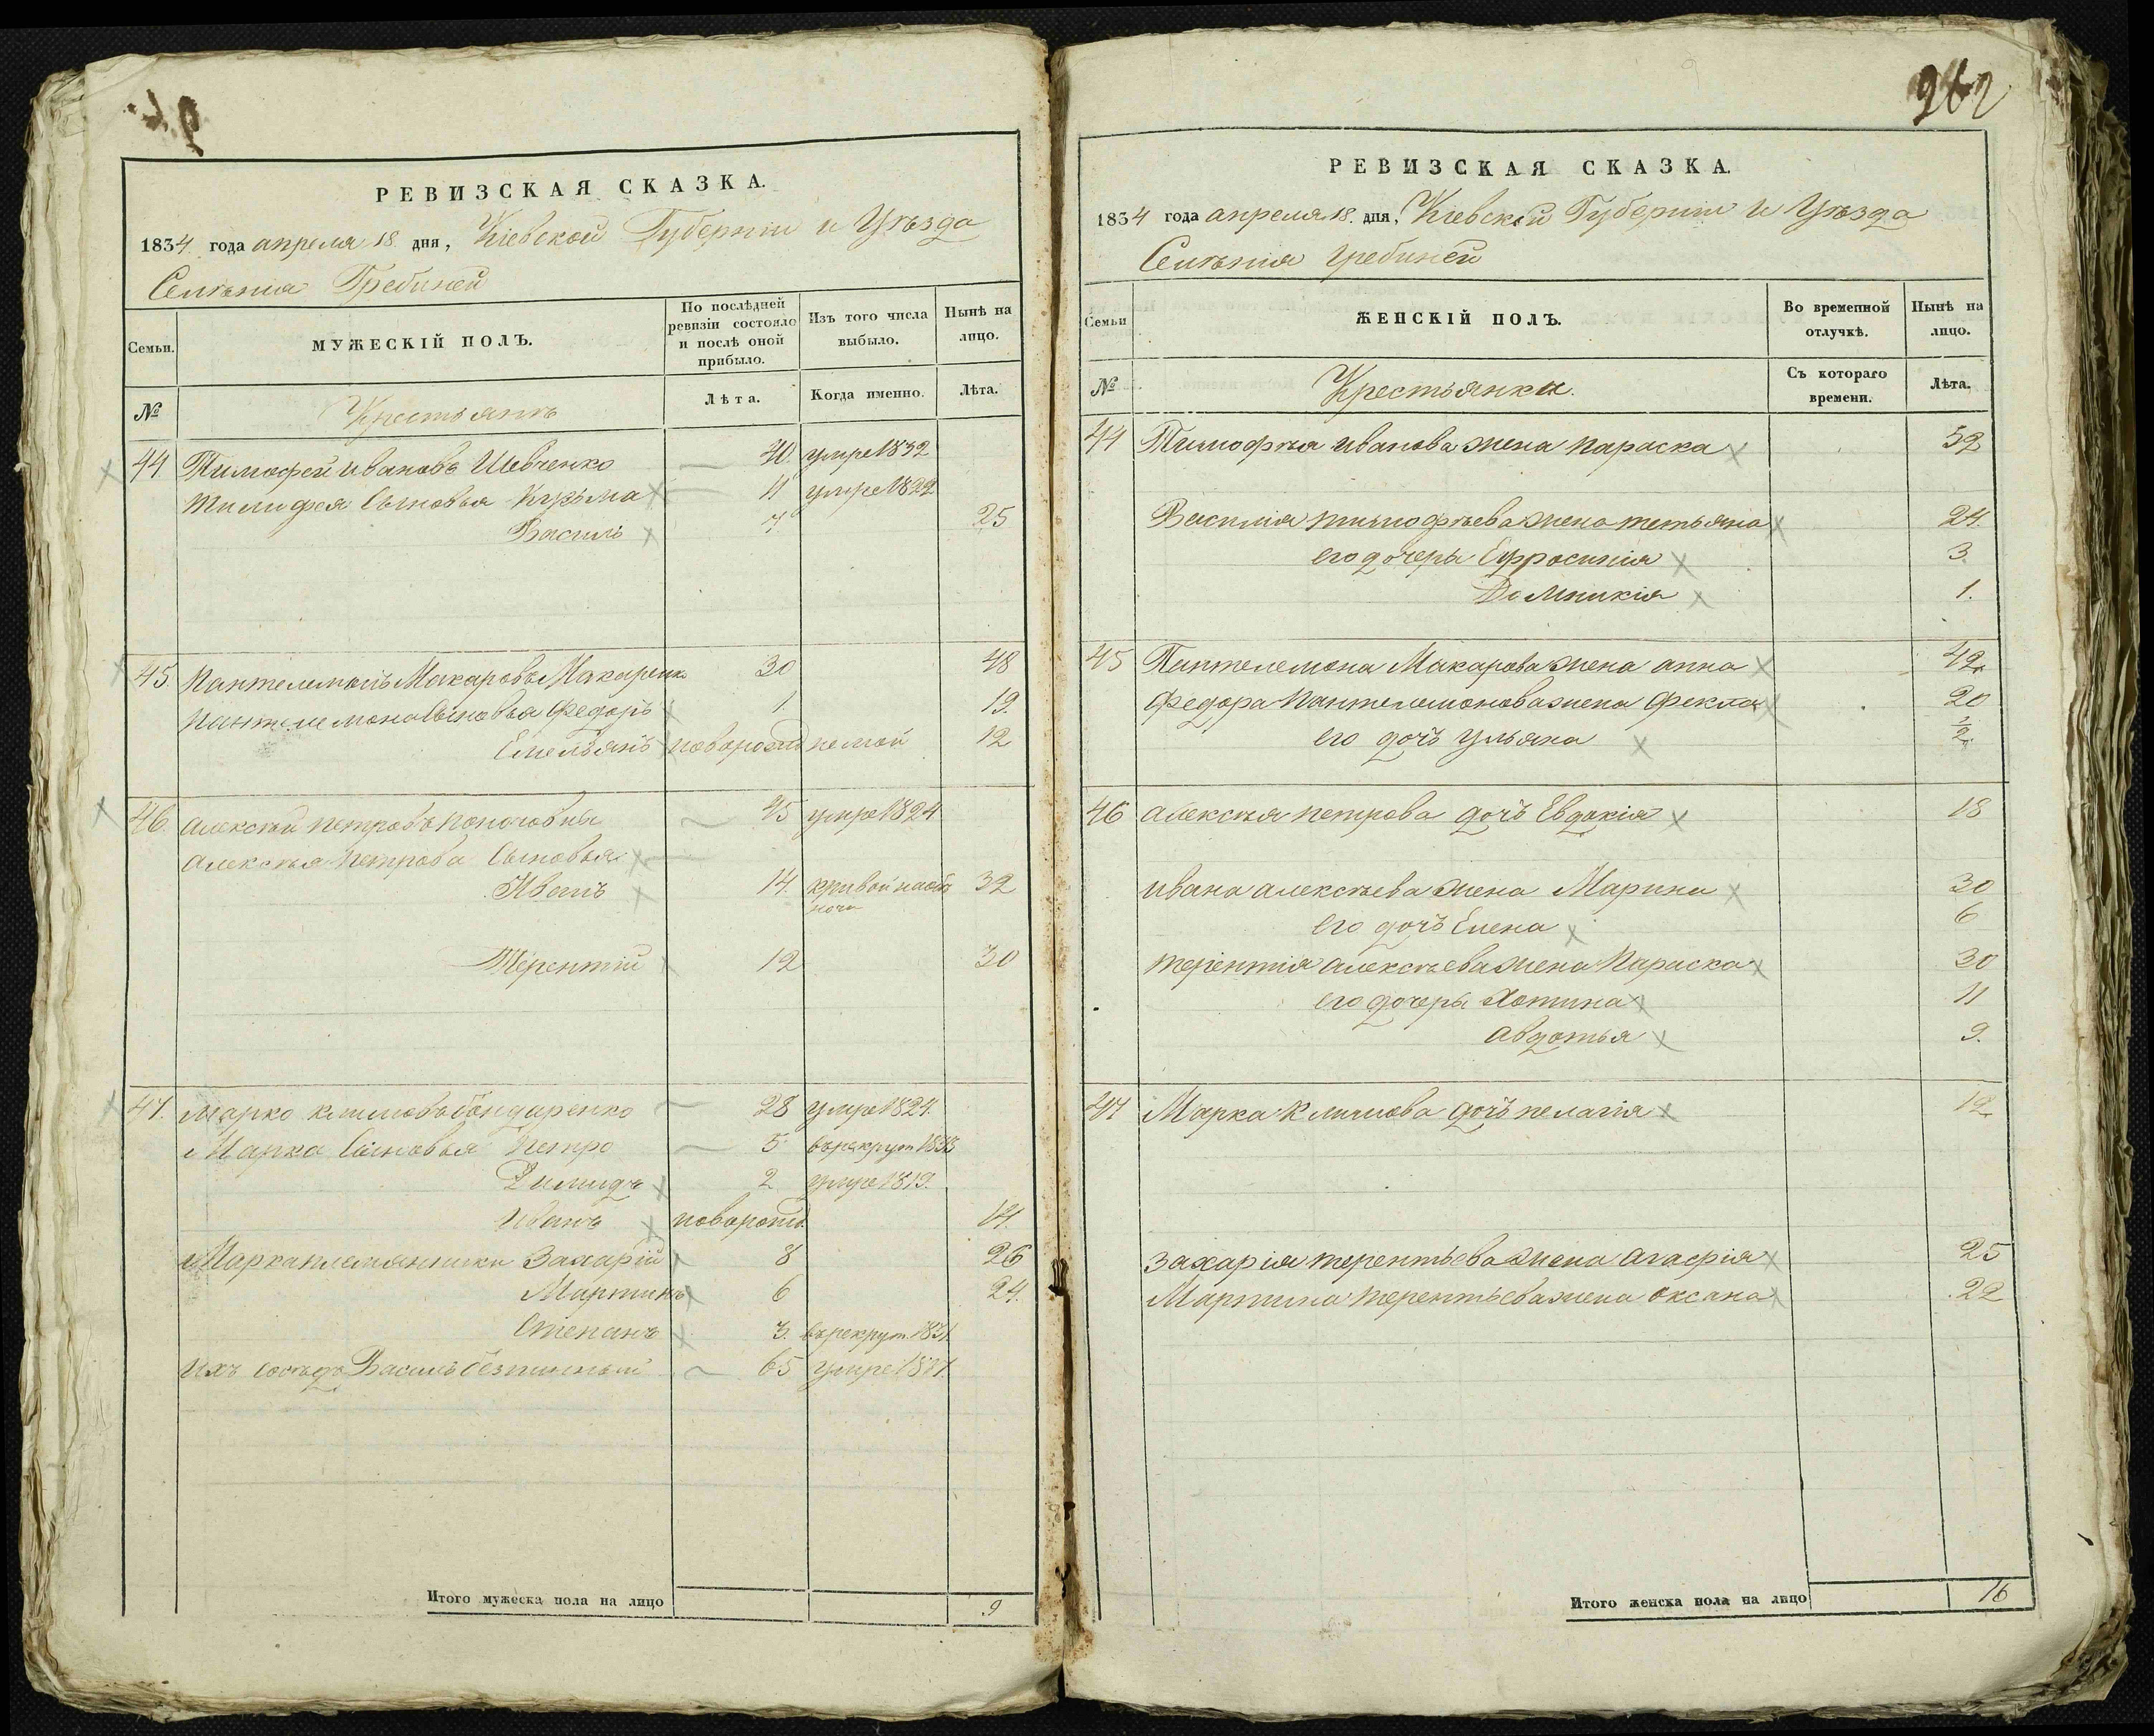 262
РЕВИЗСКАЯ СКАЗКА.
1834 года апреля 18 дня, Кіевской Губерніи и Уѣзда
Селѣнія Гребиней
Семьи.
МУЖЕСКІЙ ПОЛЪ.
По послѣдней ревизіи состояло и послѣ оной прибыло.
Изъ того числа выбыло.
Нынѣ на лицо.
№
Крестьянъ
Лѣта.
Когда именно.
Лѣта.
44. Тимофей Ивановъ Шевченко 40 умре 1832
Тимофея Сыновья Кузьма 11 умре 1822
Василь 7 25
45. Пантелемонъ Макаровъ Макаренко 30 48
Пантелемона Сыновья Федоръ 1 19
Емельянъ новорожд немой 12
46. Алексѣй Петровъ 45 умре 1824
Алексѣя Петрова Сыновья
Иванъ 14. кривой на оба 32
ноги
Терентій 12 30
47. Марко Климовъ Бондаренко 28 умре 1824.
Марка Сыновья Петро 5 въ рекрут 1833
Димидъ 2 умре 1819.
Иванъ новорожд. 14.
Марка племянники Захарій 8 26
Мартинъ 6 24.
Степанъ 3. въ рекрут. 1831
Ихъ сосѣдъ Василь 65 умре 1821.
Итого мужеска пола на лицо 9
РЕВИЗСКАЯ СКАЗКА.
1834 года апреля 18. дня, Кіевской Губерніи и Уѣзда
Селѣнія Гребиней
Семьи
ЖЕНСКІЙ ПОЛЪ.
Во временной отлучкѣ.
Нынѣ на лицо.
№
Крестьянки.
Съ котораго времени.
Лѣта.
44 Тимофѣя Иванова жена Параска 52
Василія Тимофѣева жена Тетьяна 24.
его дочери Ефросинія 3.
Домникія 1.
45 Пантелемона Макарова жена Анна 42
Федора Пантелемонова жена Фекла 20
его дочь Ульяна ½
46 Алексѣя Петрова дочь Евдокія 18
Ивана Алексѣева жена Марина 30
его дочь Елена 6
Терентія Алексѣева жена Параска 30
его дочери Хотина 11
Авдотья 9.
47 Марка Климова дочь Пелагія 12
Захарія Терентьева жена Агафія 25
Мартина Терентьева жена Оксана 22
Итого женска пола на лицо 16